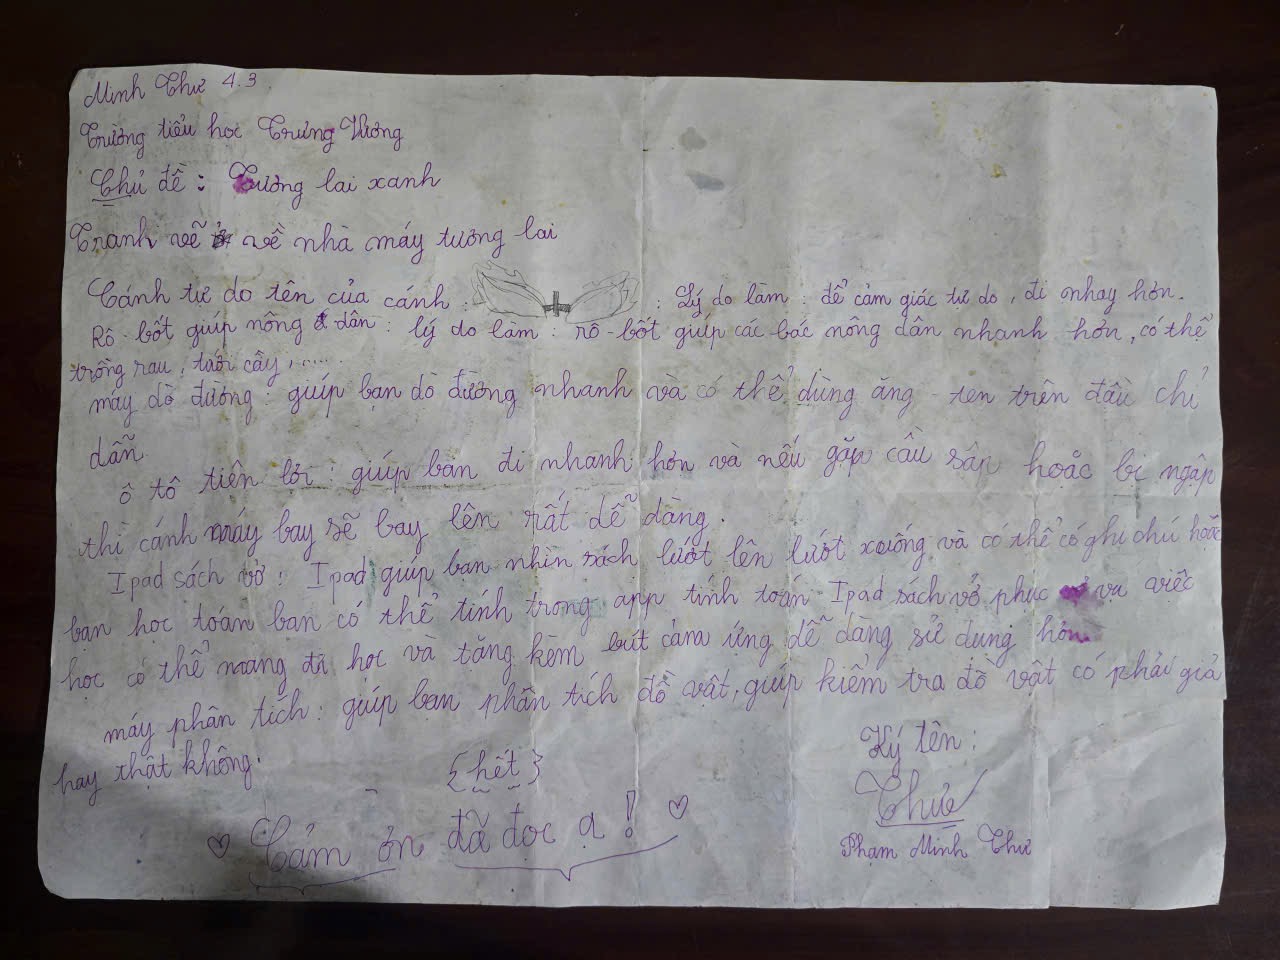 Minh Thư 4.3
Trường tiểu học Trưng Vương
Chủ đề : Tương lai xanh
Tranh vẽ về nhà máy tương lai
Cánh tự do tên của cánh : : Lý do làm : để cảm giác tự do, đi nhay hơn.
Rô-bốt giúp nông dân : lý do làm : rô-bốt giúp các bác nông dân nhanh hơn, có thể
trồng rau, tưới cầy, .....
máy dò đường : giúp bạn dò đường nhanh và có thể dùng ăng-ten trên đầu chỉ
dẫn.
ô tô tiện lợi : giúp bạn đi nhanh hơn và nếu gặp cầu sập hoặc bị ngập
thì cánh máy bay sẽ bay lên rất dễ dàng.
Ipad sách vở : Ipad giúp bạn nhìn sách lướt lên lướt xuống và có thể có ghi chú hoặc
bạn học toán bạn có thể tính trong app tính toán Ipad sách vở phục vụ việc
học có thể mang đi học và tặng kèm bút cảm ứng dễ dàng sử dụng hơn
máy phân tích : giúp bạn phân tích đồ vật, giúp kiểm tra đồ vật có phải giả
hay thật không.
{hết}
Ký tên :
Thư
Cảm ơn đã đọc ạ !
Phạm Minh Thư